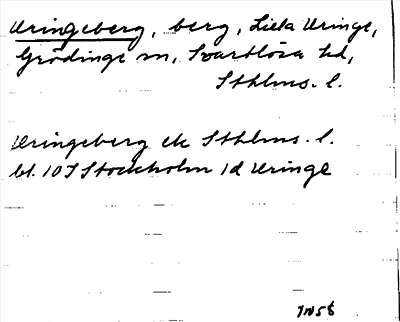 Uringeberg, berg, Lilla Uringe,
Grödinge sn, Svartlösa hd,
Sthlms. l.
Uringeberg ek Sthlms. l.
bl. 10 I Stockholm 1d Uringe